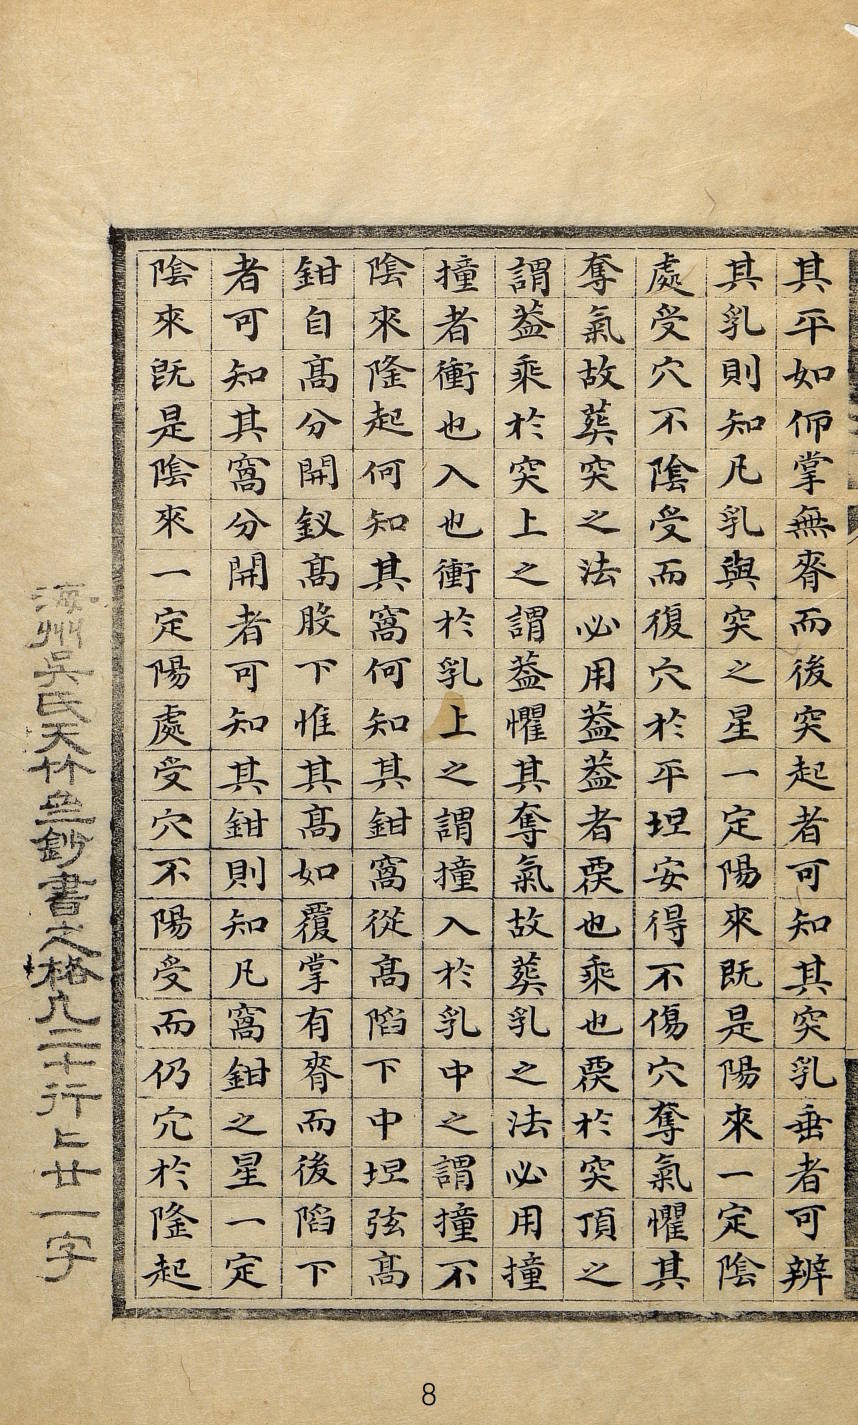 其平如仰掌無脊而後突起者可知其突乳垂者可辨
其乳則知凡乳與突之星一定陽來既是陽來一定陰
處受穴不陰受而復穴於平坦安得不傷穴奪氣懼其
奪氣故葬突之法必用葢葢者覆也乘也覆於突頂之
謂葢乘於突上之謂葢懼其奪氣故葬乳之法必用撞
撞者衝也入也衝於乳上之謂撞入於乳中之謂撞不
陰來隆起何知其窩何知其鉗窩從髙陷下中坦弦髙
鉗自髙分開釵髙股下惟其髙如覆掌有脊而後陷下
者可知其窩分開者可知其鉗則知凡窩鉗之星一定
陰來既是陰來一定陽處受穴不陽受而仍穴於隆起
海州吳氏天竹盦鈔書之格凡二十行二廿一字
8